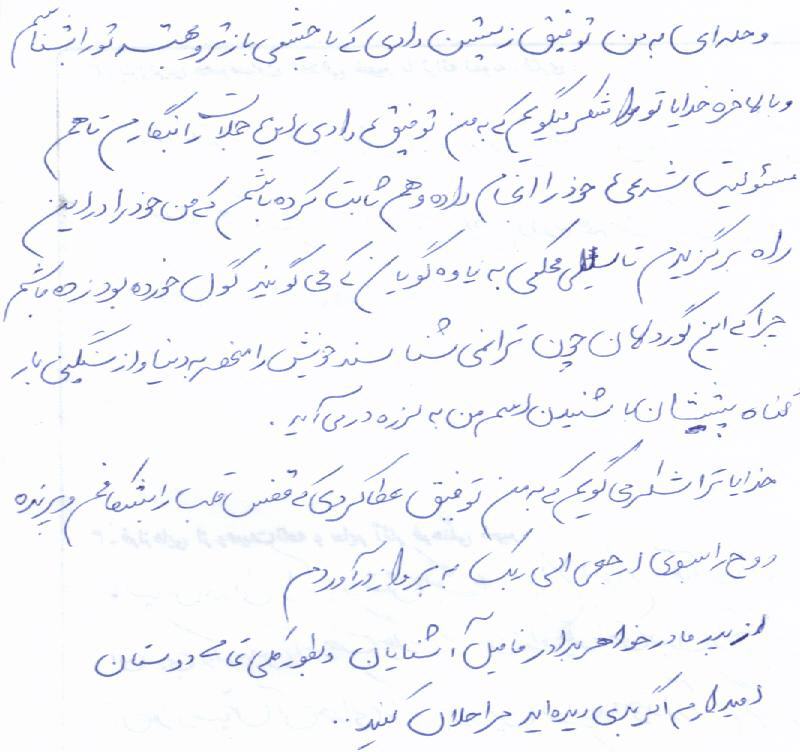 وحله ای به من توفیق زیستن دادی که با چشمی بازتر و بهتر تو را بشناسم
و بالاخره خدایا تو را شکر میگویم که به من توفیق دادی این جملات را بنگارم تا هم
مسئولیت شرعی خود را انجام داده و هم ثابت کرده باشم که من خود را در این
راه برگزیدم تا سیلی محکمی به یاوه گویان که می گویند گول خورده بود زده باشم
چرا که این کوردلان چون ترا نمی شناسند خویش را منحصر به دنیا و از سنگینی بار
گناه پشتشان با شنیدن اسم من به لرزه در می آید.
خدایا ترا شکر می گویم که به من توفیق عطا کردی که قفس قلب را بشکافم و پرنده
روح را بسوی ارجعی الی ربک به پرواز درآوردم
از پدر مادر خواهر برادر فامیل آشنایان و بطور کلی تمامی دوستان
امیدوارم اگر بدی دیده اید مرا حلال کنید..